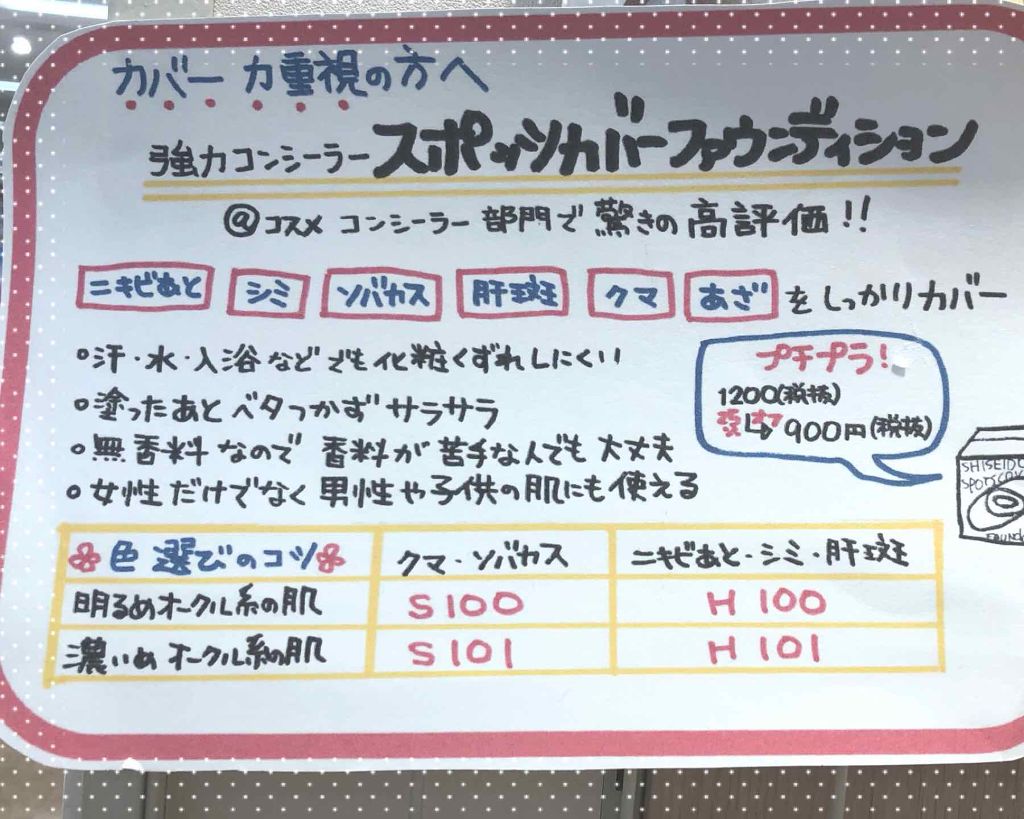 カバー力重視の方へ
強力コンシーラー スポッツカバーファウンディション
@コスメ コンシーラー部門で驚きの高評価!!
ニキビあと シミ ソバカス 肝斑 クマ あざ をしっかりカバー
○汗・水・入浴などでも化粧くずれしにくい
○塗ったあとベタつかずサラサラ
○無香料なので香料が苦手な人でも大丈夫
○女性だけでなく男性や子供の肌にも使える
プチプラ!
1200(税抜)
↳900円(税抜)
SHISEIDO
色選びのコツ クマ・ソバカス ニキビあと・シミ・肝斑
明るめオークル系の肌 S100 H100
濃いめオークル系の肌 S101 H101